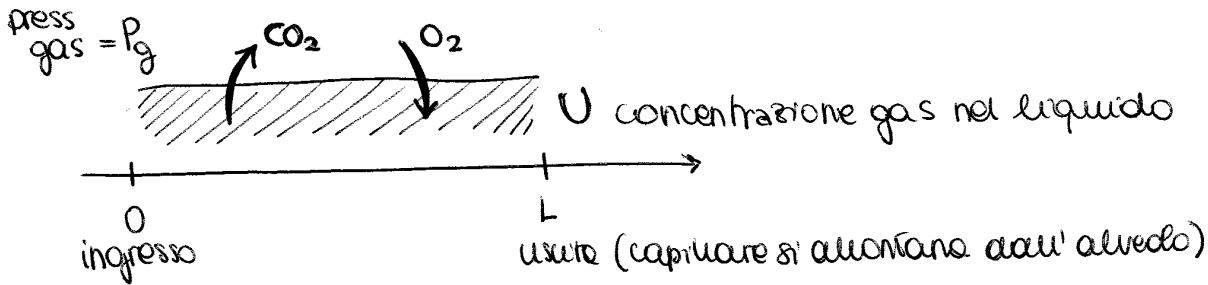 press
gas = Pg
CO₂
O₂
U concentrazione gas nel liquido
0
L
ingresso
uscita (capillare si allontana dall' alveolo)